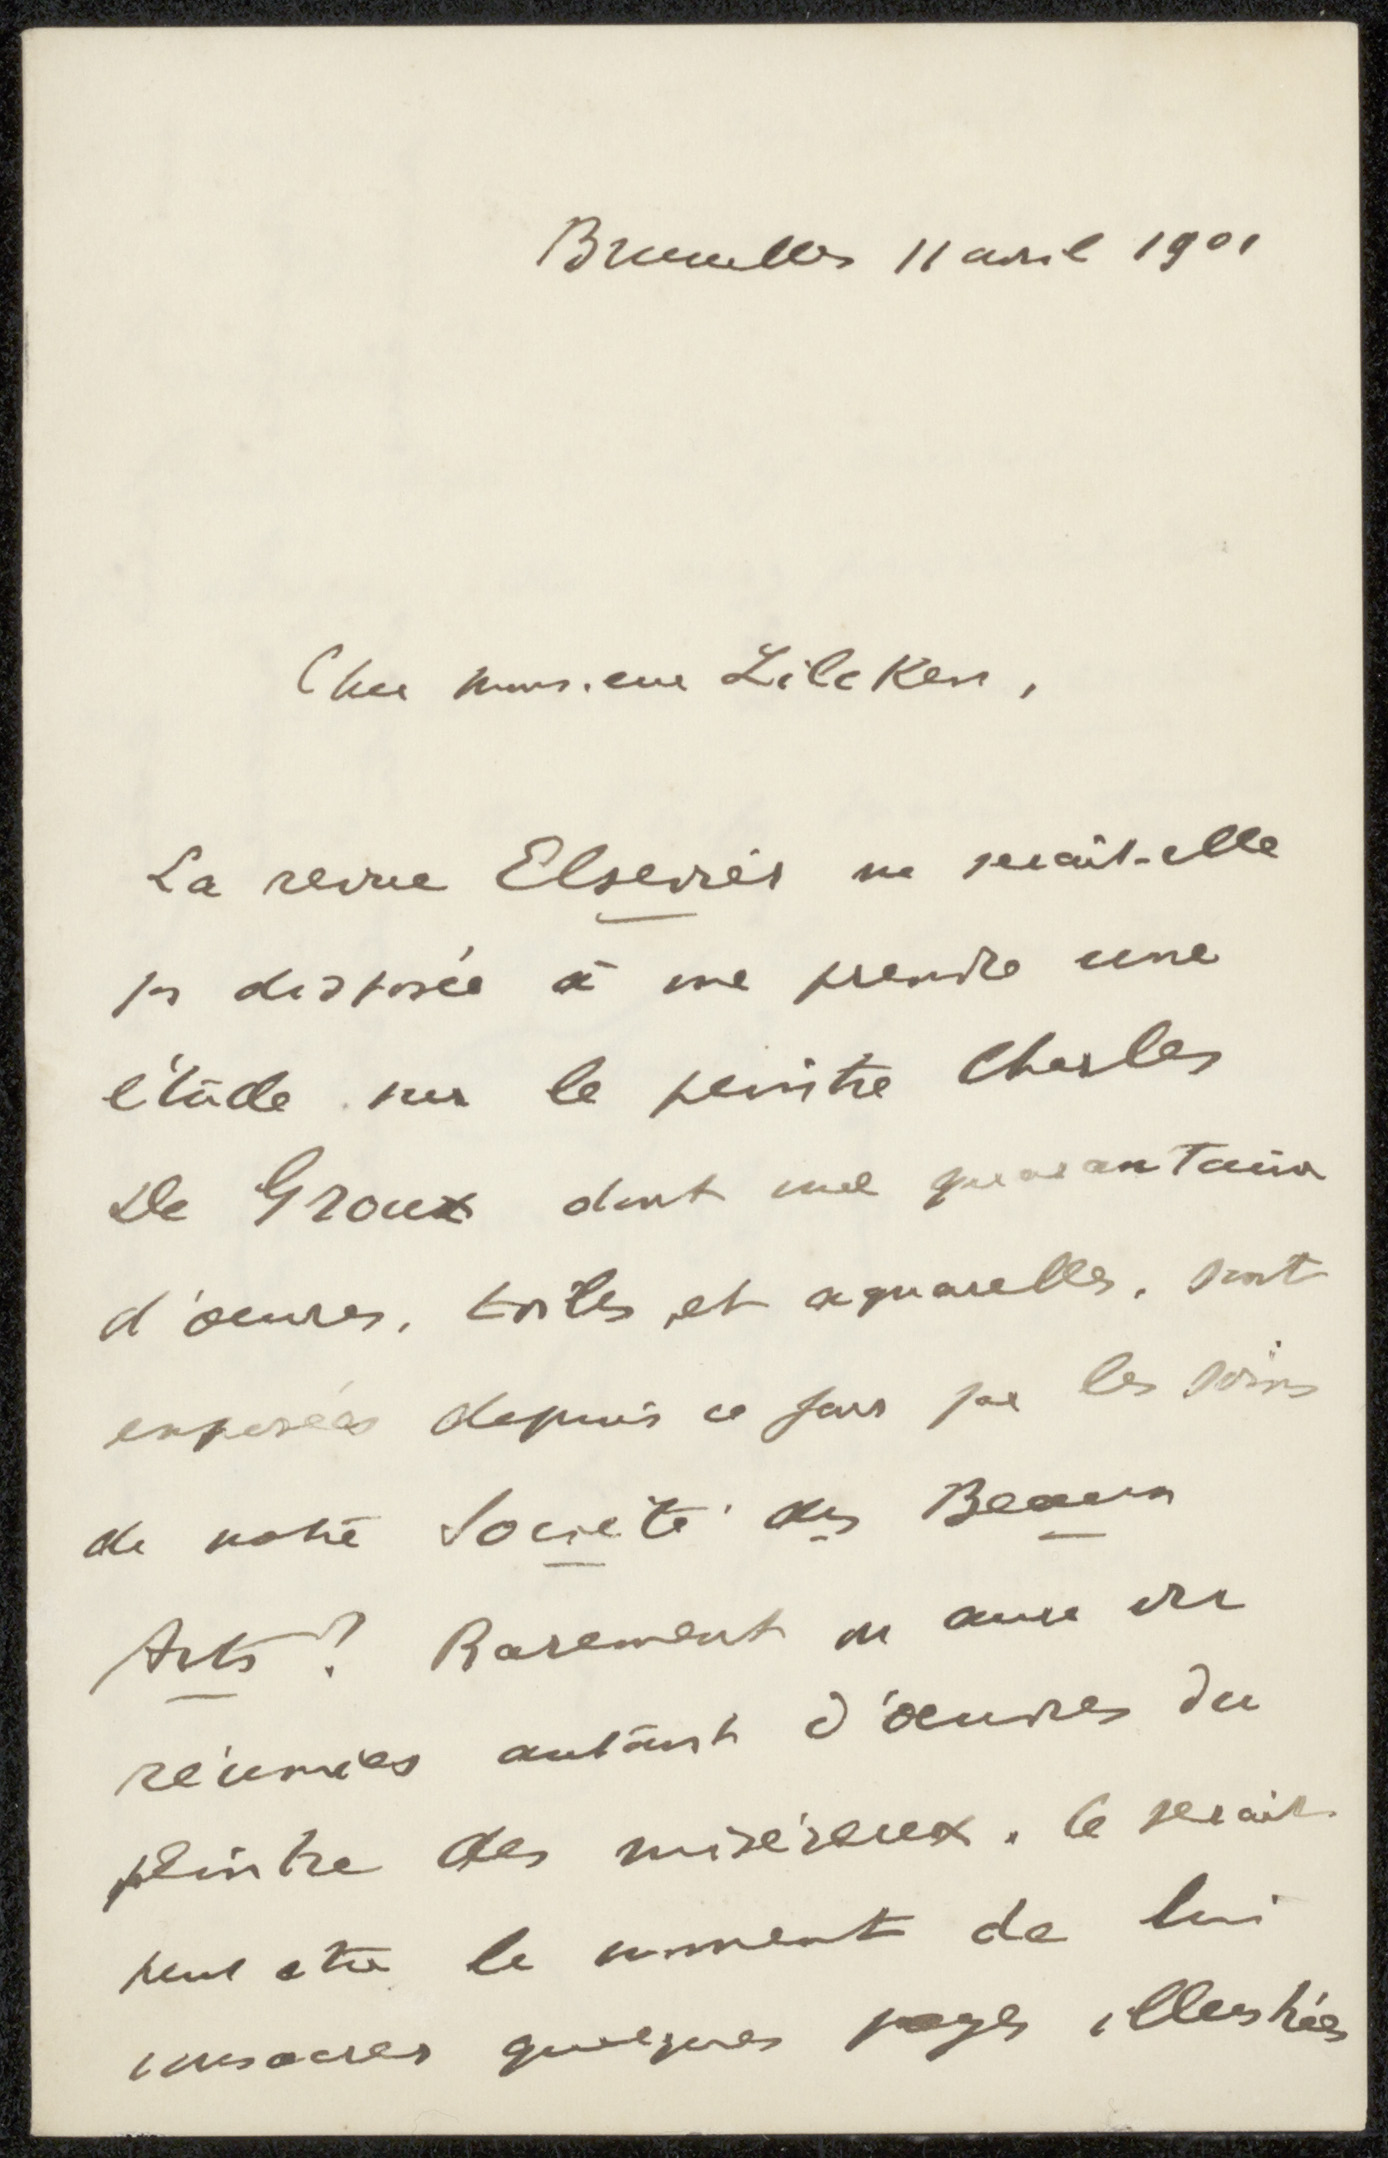 Bruxelles 11 avril 1901
Cher monsieur Zilcken,
La revue Elsevier ne serait-elle
pas disposée à me prendre une
étude sur le peintre Charles
De Groux dont une quarantaine
d'oeuvres, toiles et aquarelles, sont
exposées depuis ce jour par les soins
de notre Société des Beaux
Arts? Rarement on aura vu
réunies autant d'oeuvres du
peintre des miséreux. Ce serait
peut etre le moment de lui
consacrer quelques pages illustrées